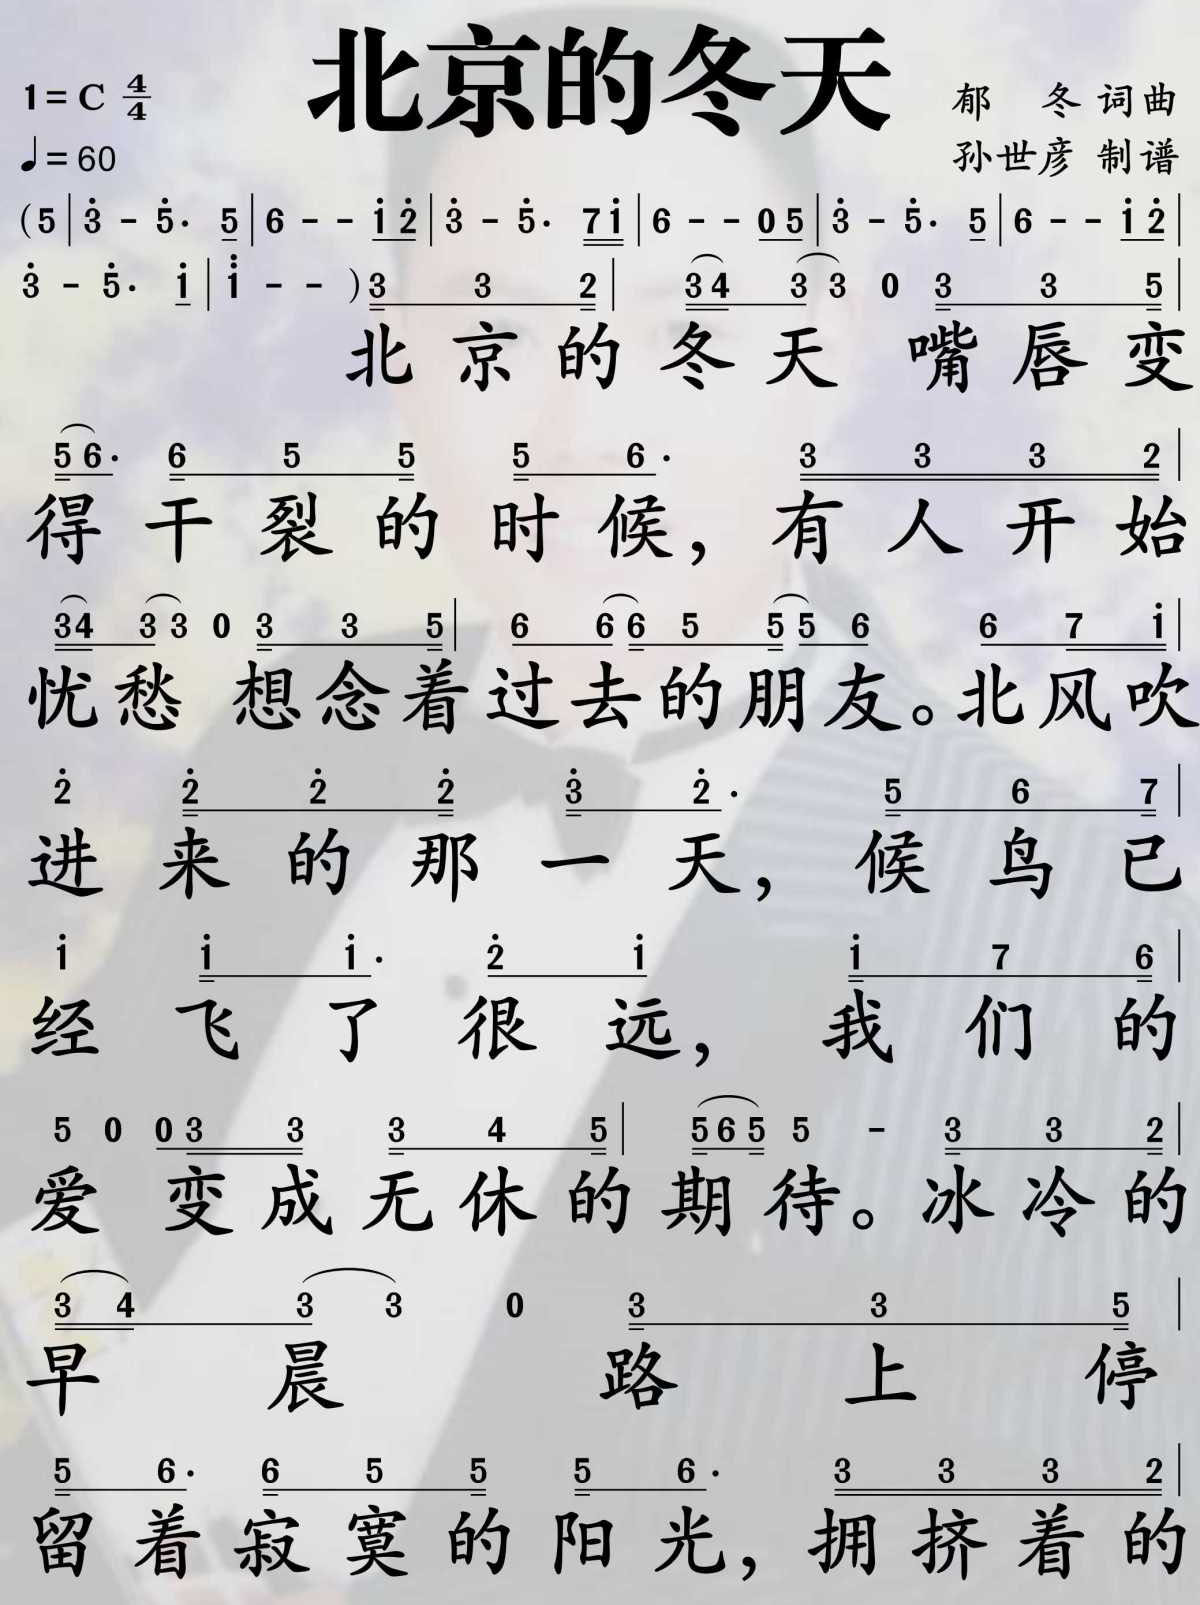 北京的冬天
1=C 4/4
郁 冬 词曲
♩=60
孙世彦 制谱
(5|3̇ - 5̇· 5|6 - - i̇2̇|3̇ - 5̇· 7i̇|6 - - 05|3̇ - 5̇· 5|6 - - i̇2̇|
3̇ - 5̇· i̇|i̇̇ - - )3 3 2|34 3 3 0 3 3 5|
北京的冬天 嘴唇变
5 6· 6 5 5 5 6· 3 3 3 2|
得干裂的时候，有人开始
34 3 3 0 3 3 5|6 6 6 5 5 5 6 6 7 i̇|
忧愁 想念着过去的朋友。北风吹
2̇ 2̇ 2̇ 2̇ 3̇ 2̇· 5 6 7|
进来的那一天，候鸟已
i̇ i̇ i̇· 2̇ i̇ i̇ 7 6|
经飞了很远，我们的
5 0 0 3 3 3 4 5|5 6 5 5 - 3 3 2|
爱 变成无休的期待。冰冷的
3 4 3 3 0 3 3 5|
早晨 路上停
5 6· 6 5 5 5 6· 3 3 3 2|
留着寂寞的阳光，拥挤着的